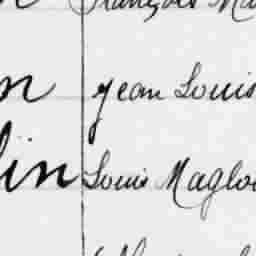 François Ma
n Jean Louis
lin Louis Magloi